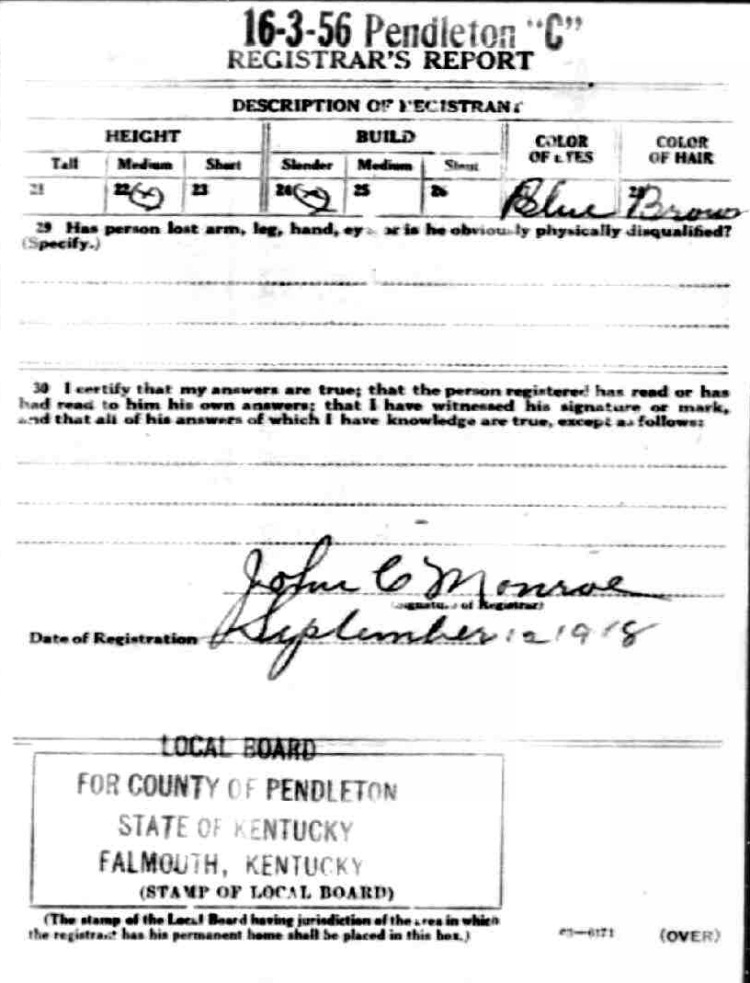 16-3-56 Pendleton "C"
REGISTRAR'S REPORT
DESCRIPTION OF REGISTRANT
HEIGHT BUILD COLOR OF EYES COLOR OF HAIR
Tall Medium Short Slender Medium Stout
21 22 (x) 23 24 (x) 25 26 Blue 28 Brown
29 Has person lost arm, leg, hand, eye, or is he obviously physically disqualified?
(Specify.)
30 I certify that my answers are true; that the person registered has read or has
had read to him his own answers; that I have witnessed his signature or mark,
and that all of his answers of which I have knowledge are true, except as follows:
John C Monroe
(Signature of Registrar)
Date of Registration September 12 1918
LOCAL BOARD
FOR COUNTY OF PENDLETON
STATE OF KENTUCKY
FALMOUTH, KENTUCKY
(STAMP OF LOCAL BOARD)
(The stamp of the Local Board having jurisdiction of the area in which
the registrant has his permanent home shall be placed in this box.)
03—6171 (OVER)